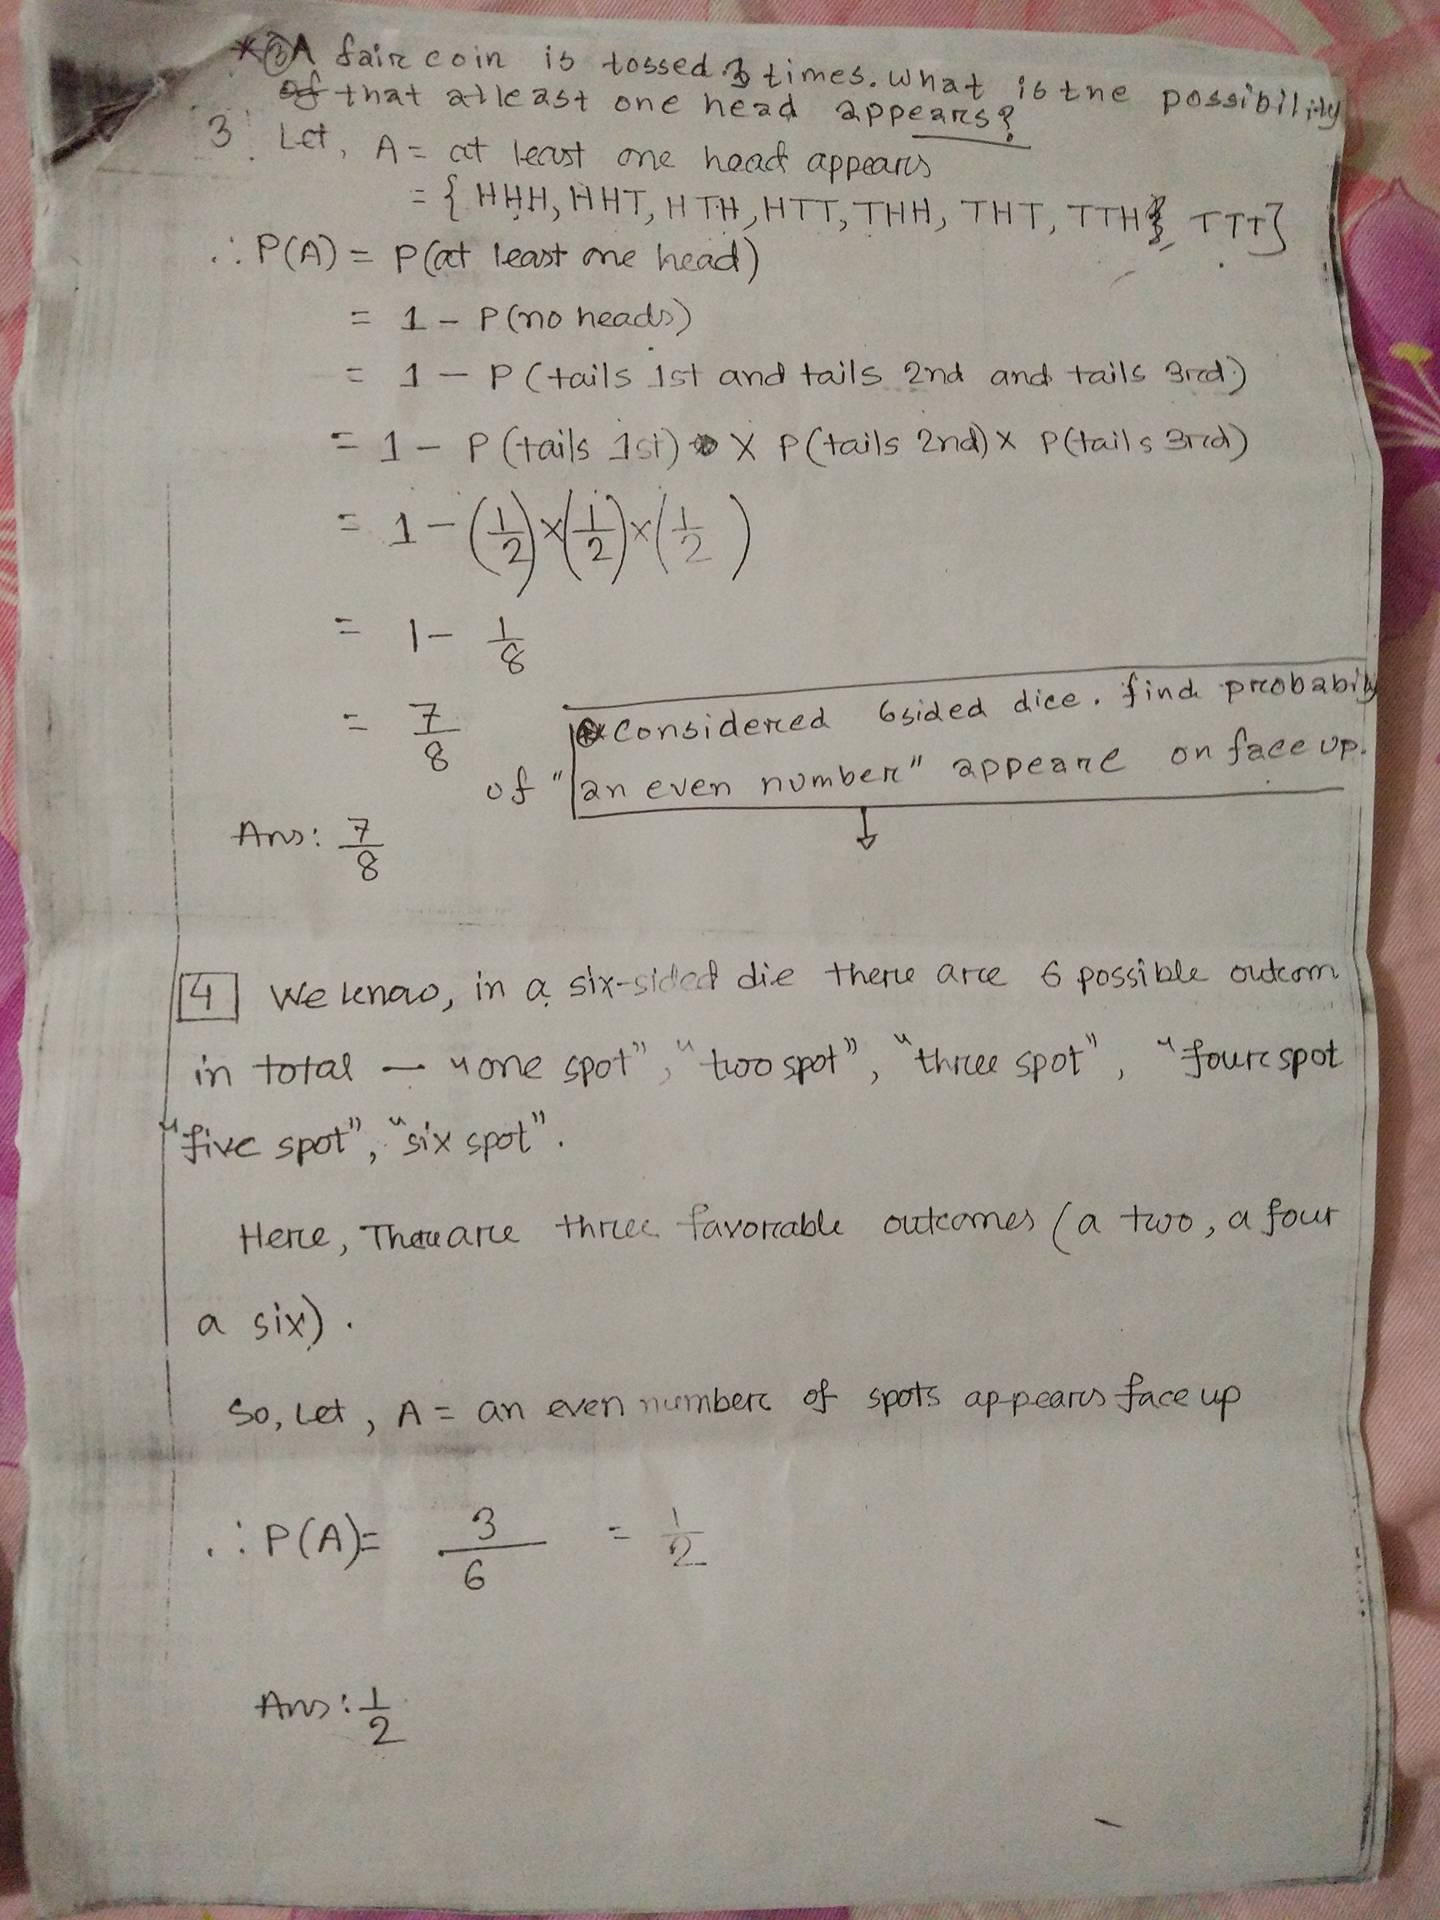 *③A fair coin is tossed 3 times. What is the possibility
of that atleast one head appears?
3. Let, A = at least one head appears
= { HHH, HHT, HTH, HTT, THH, THT, TTH, TTT}
∴ P(A) = P(at least one head)
= 1 - P(no heads)
= 1 - P(tails 1st and tails 2nd and tails 3rd)
= 1 - P(tails 1st) × P(tails 2nd) × P(tails 3rd)
= 1 - (1/2) × (1/2) × (1/2)
= 1 - 1/8
= 7/8
Considered 6sided dice. find probability
of "an even number" appeare on face up.
Ans: 7/8
4 We know, in a six-sided die there are 6 possible outcom
in total — "one spot", "two spot", "three spot", "four spot
"five spot", "six spot".
Here, There are three favorable outcomes (a two, a four
a six).
So, Let, A = an even number of spots appears face up
∴ P(A) = 3/6 = 1/2
Ans: 1/2